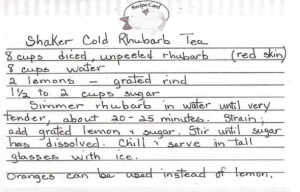 Recipe Card
Shaker Cold Rhubarb Tea
8 cups diced, unpeeled rhubarb (red skin)
8 cups water
2 lemons - grated rind
1½ to 2 cups sugar
Simmer rhubarb in water until very
tender, about 20-25 minutes. Strain;
add grated lemon & sugar. Stir until sugar
has dissolved. Chill & serve in tall
glasses with ice.
Oranges can be used instead of lemon.